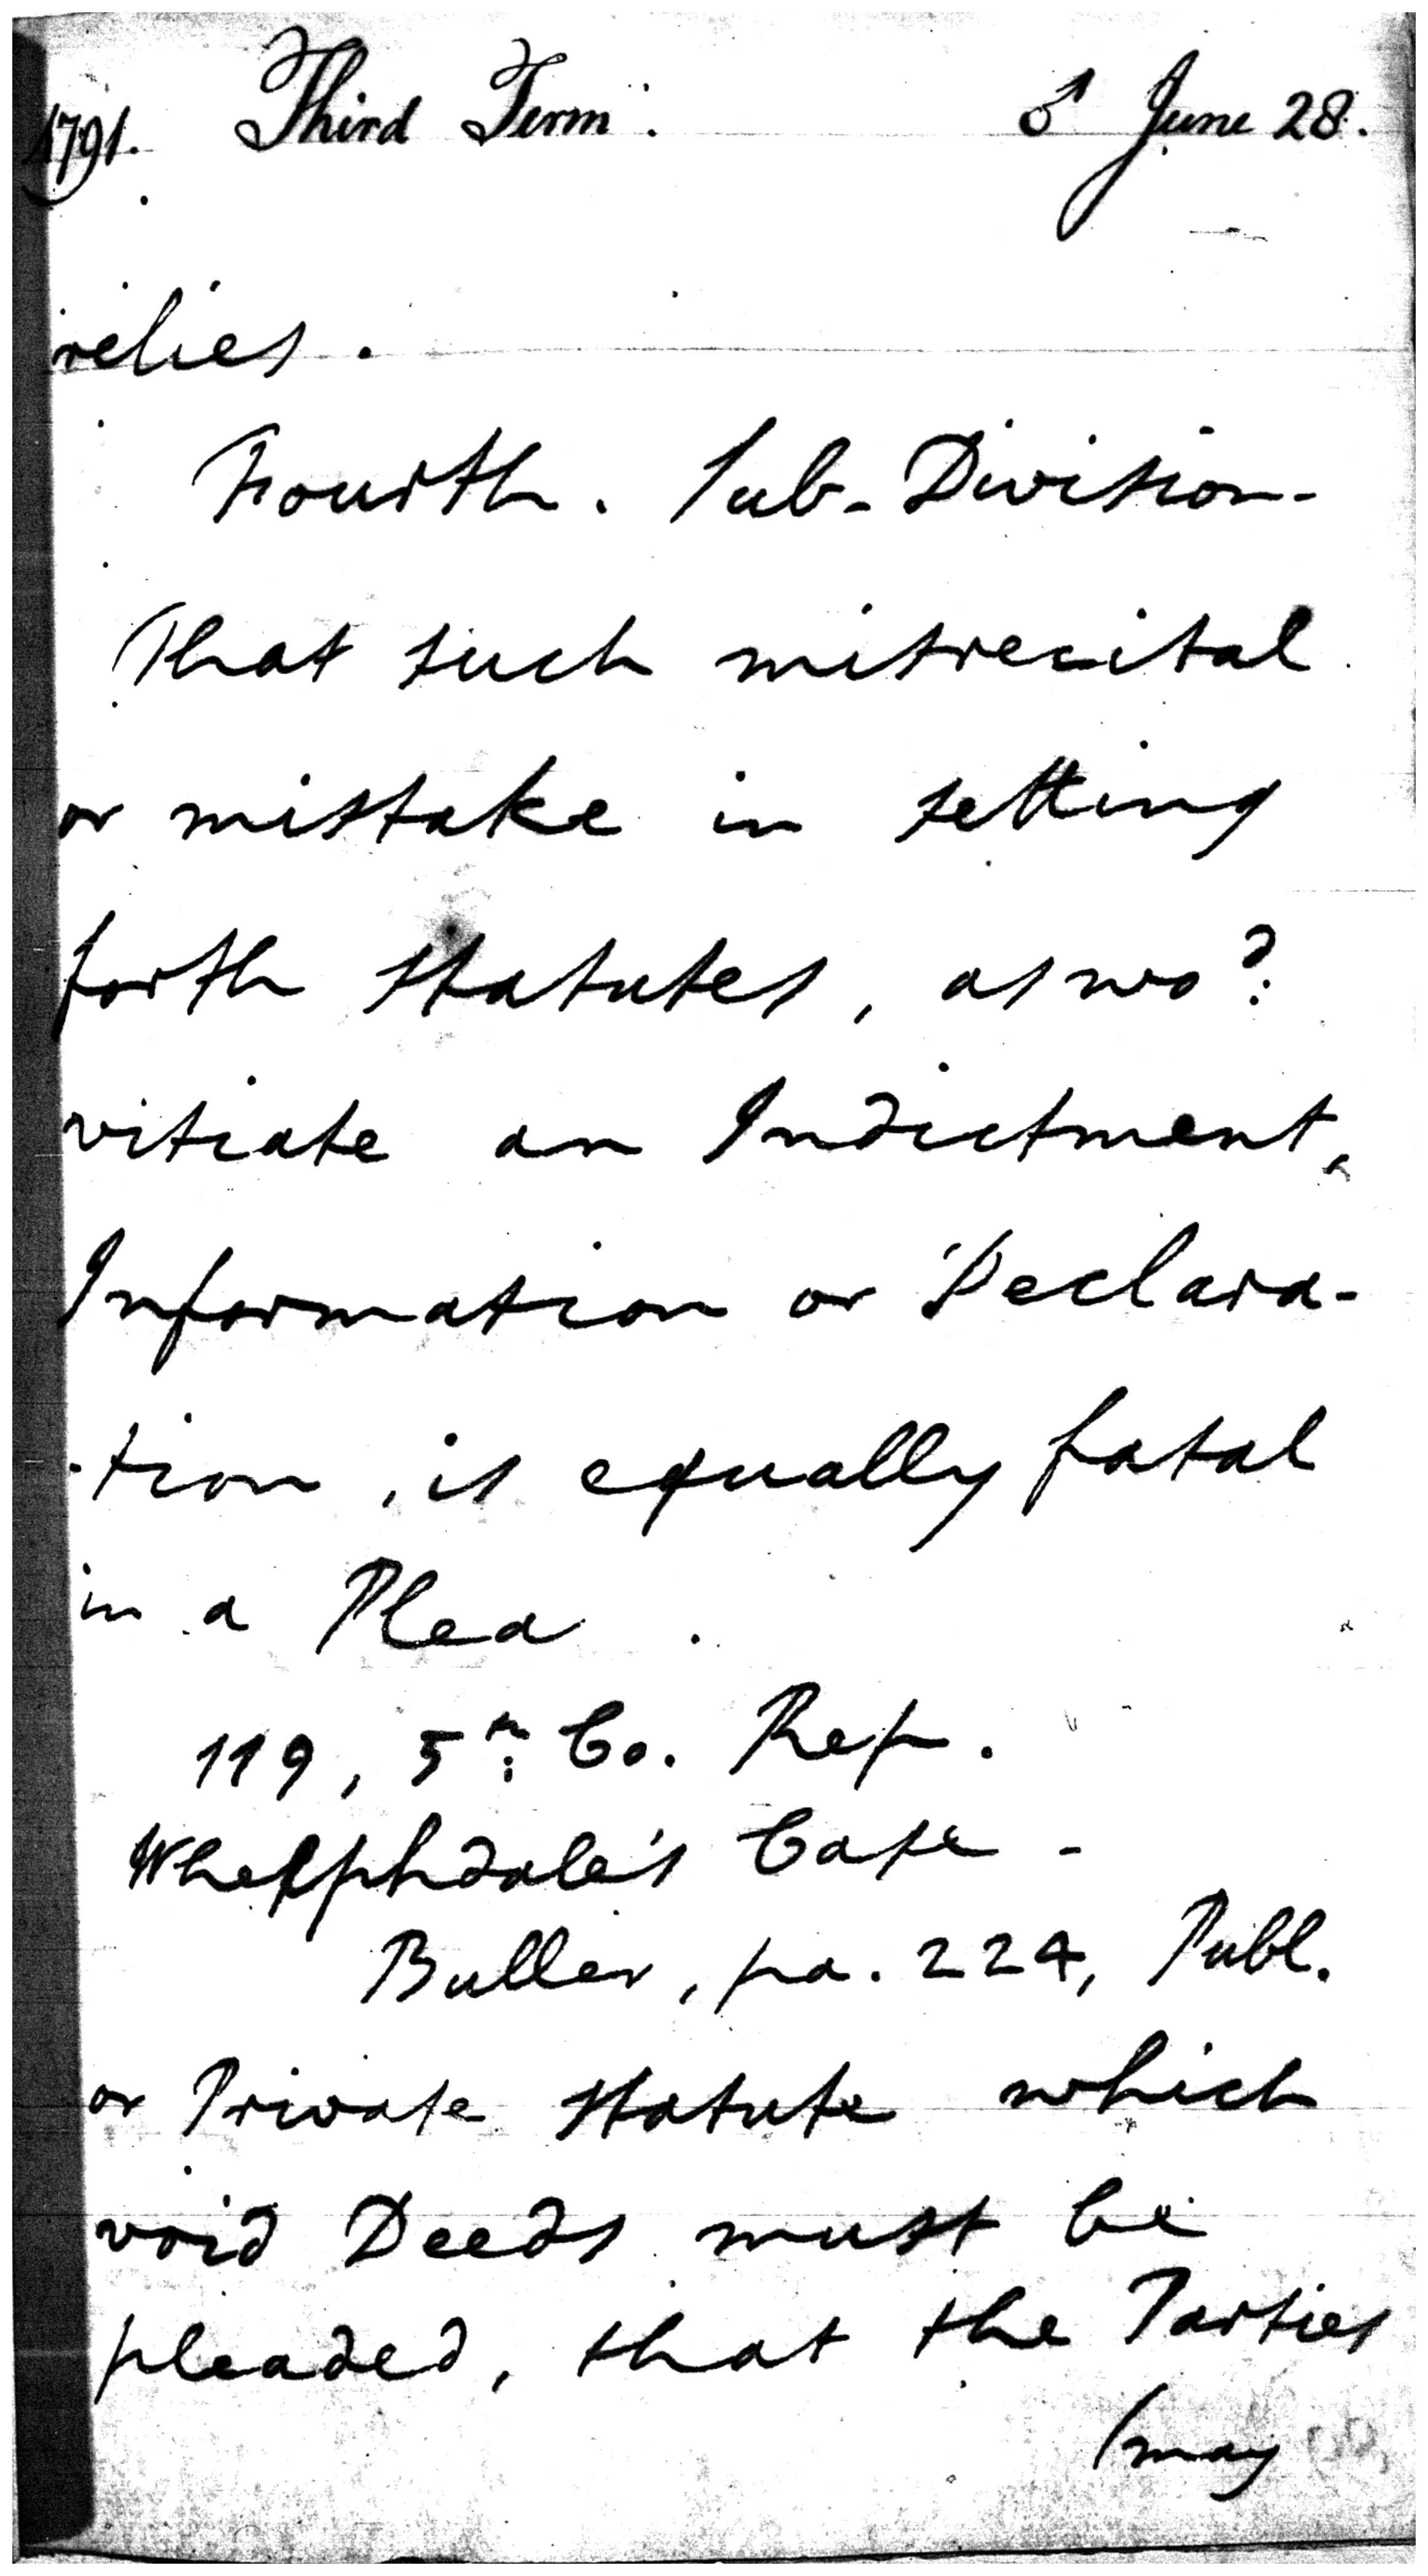 1791. Third Term. ♂ June 28.
relies.
Fourth. Sub-Division-
That such misrecital
or mistake in setting
forth Statutes, as wo:d
vitiate an Indictment,
Information or Declara-
-tion, is equally fatal
in a Plea.
119, 5th: Co. Rep.
Whelphdale's Case -
Buller, pa. 224, Publ.
or Private Statute which
void Deeds must be
pleaded, that the Parties
(may